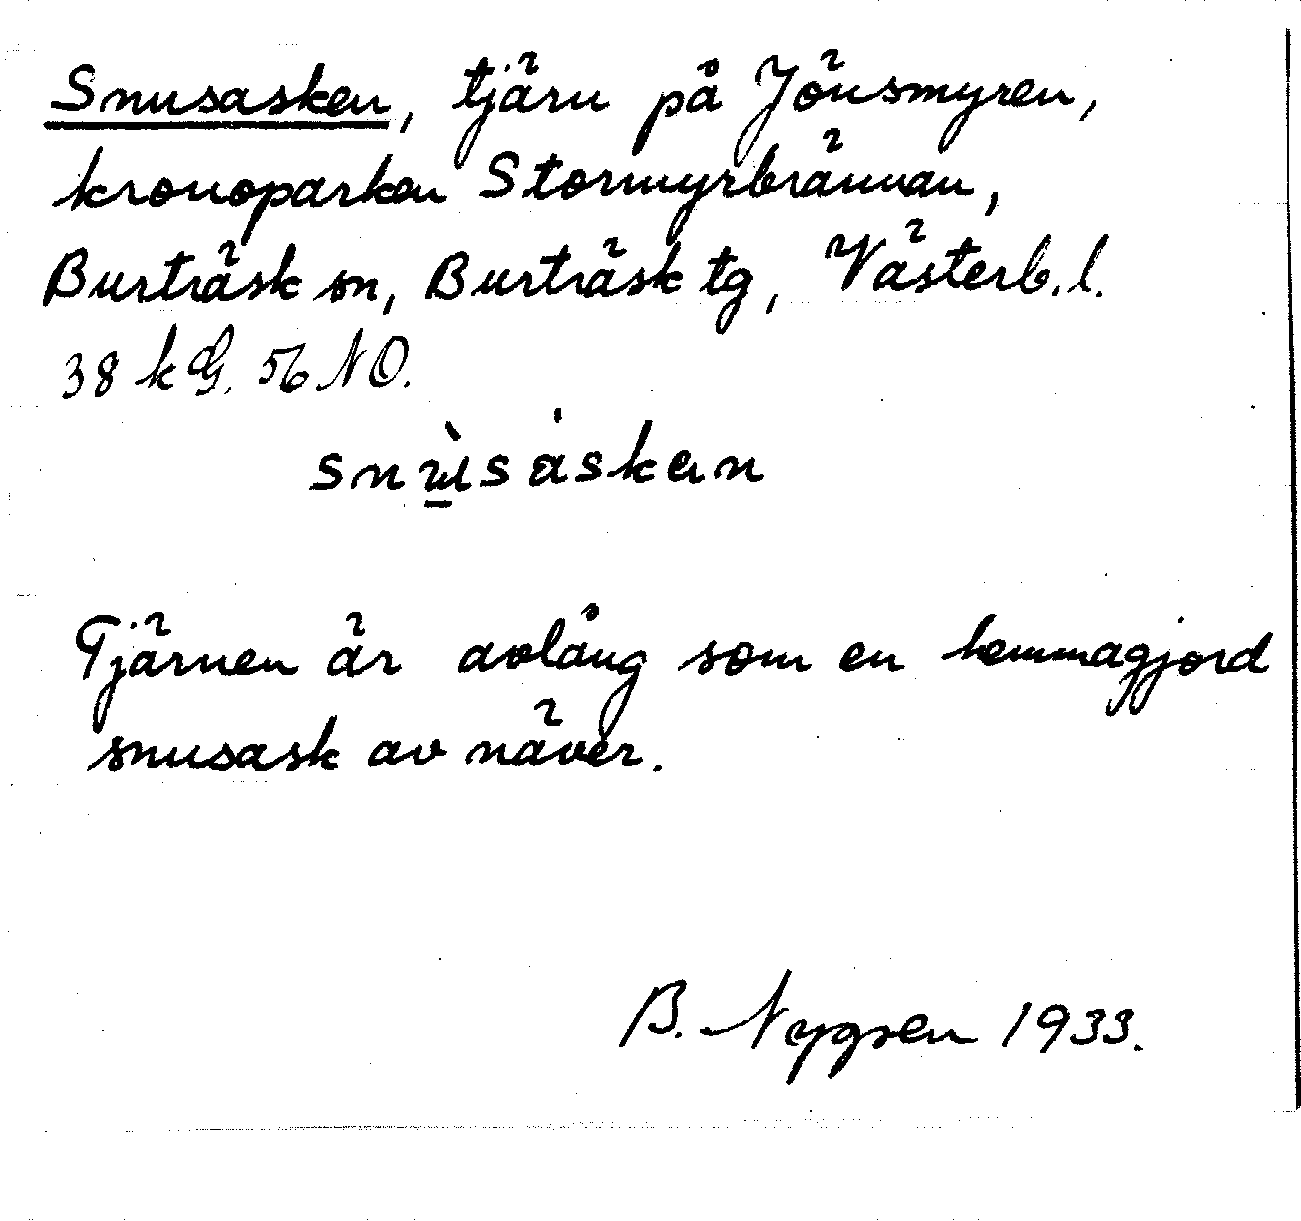 Snusasken, tjärn på Jönsmyren,
kronoparken Stormyrbrännan,
Burträsk sn, Burträsk tg, Västerb. l.
38 k G. 56 NO.
snu̱̇̀sȧskɐn
Tjärnen är avlång som en hemmagjord
snusask av näver.
B. Nygren 1933.